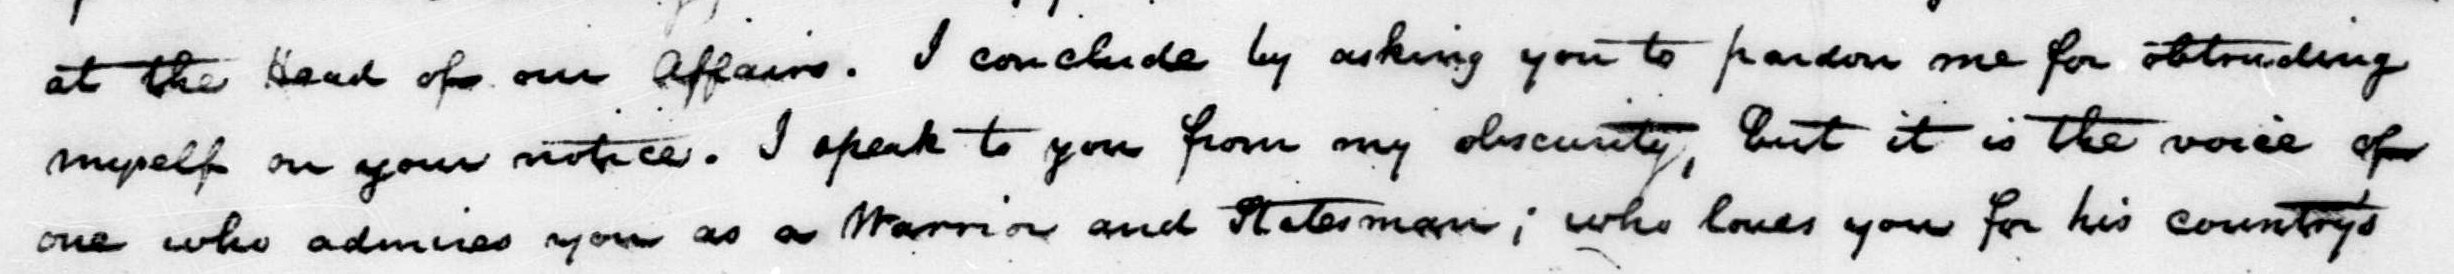 at the Head of our Affairs. I conclude by asking you to pardon me for obtruding
myself on your notice. I speak to you from my obscurity, but it is the voice of
one who admires you as a Warrior and Statesman; who loves you for his country's